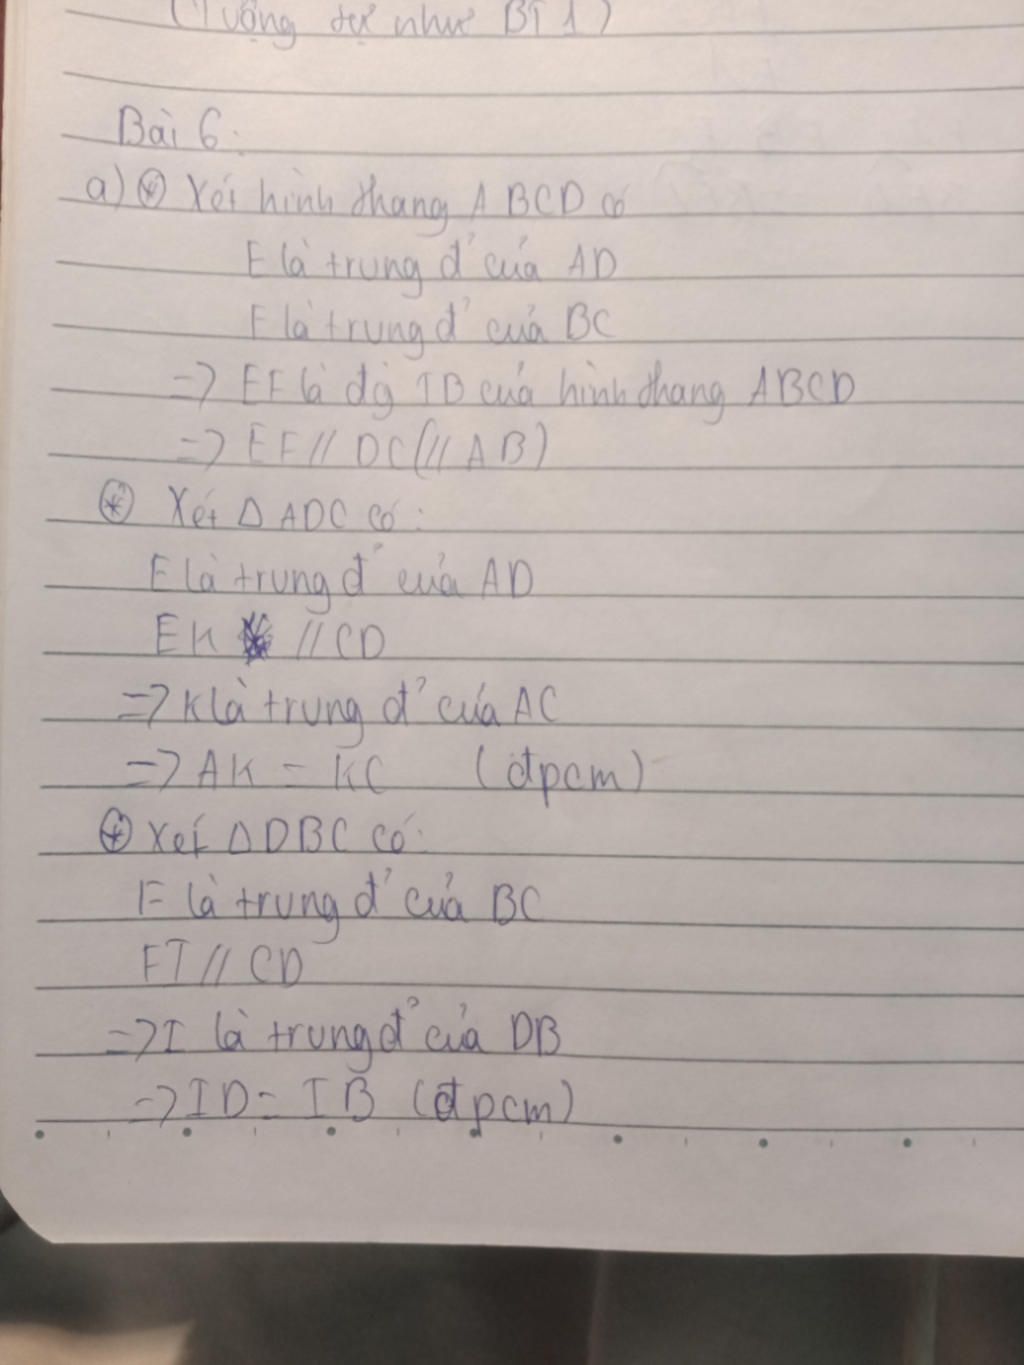 (Tương tự như BT 1)
Bài 6:
a) ⊛ Xét hình thang ABCD có
E là trung đ' của AD
F là trung đ' của BC
=> EF là đg TB của hình thang ABCD
=> EF // DC (// AB)
⊛ Xét Δ ADC có:
E là trung đ' của AD
EK // CD
=> K là trung đ' của AC
=> AK = KC (đpcm)
⊛ Xét Δ DBC có:
F là trung đ' của BC
FI // CD
=> I là trung đ' của DB
=> ID = IB (đpcm)